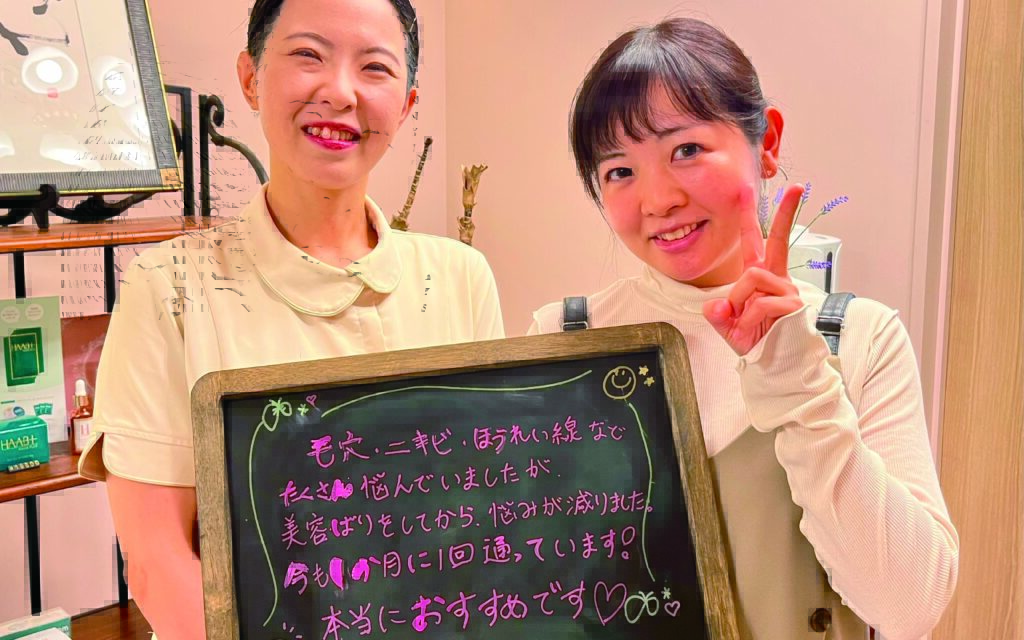 毛穴・ニキビ・ほうれい線など
たくさん悩んでいましたが、
美容ばりをしてから、悩みが減りました。
今も1か月に1回通っています！
本当におすすめです♡